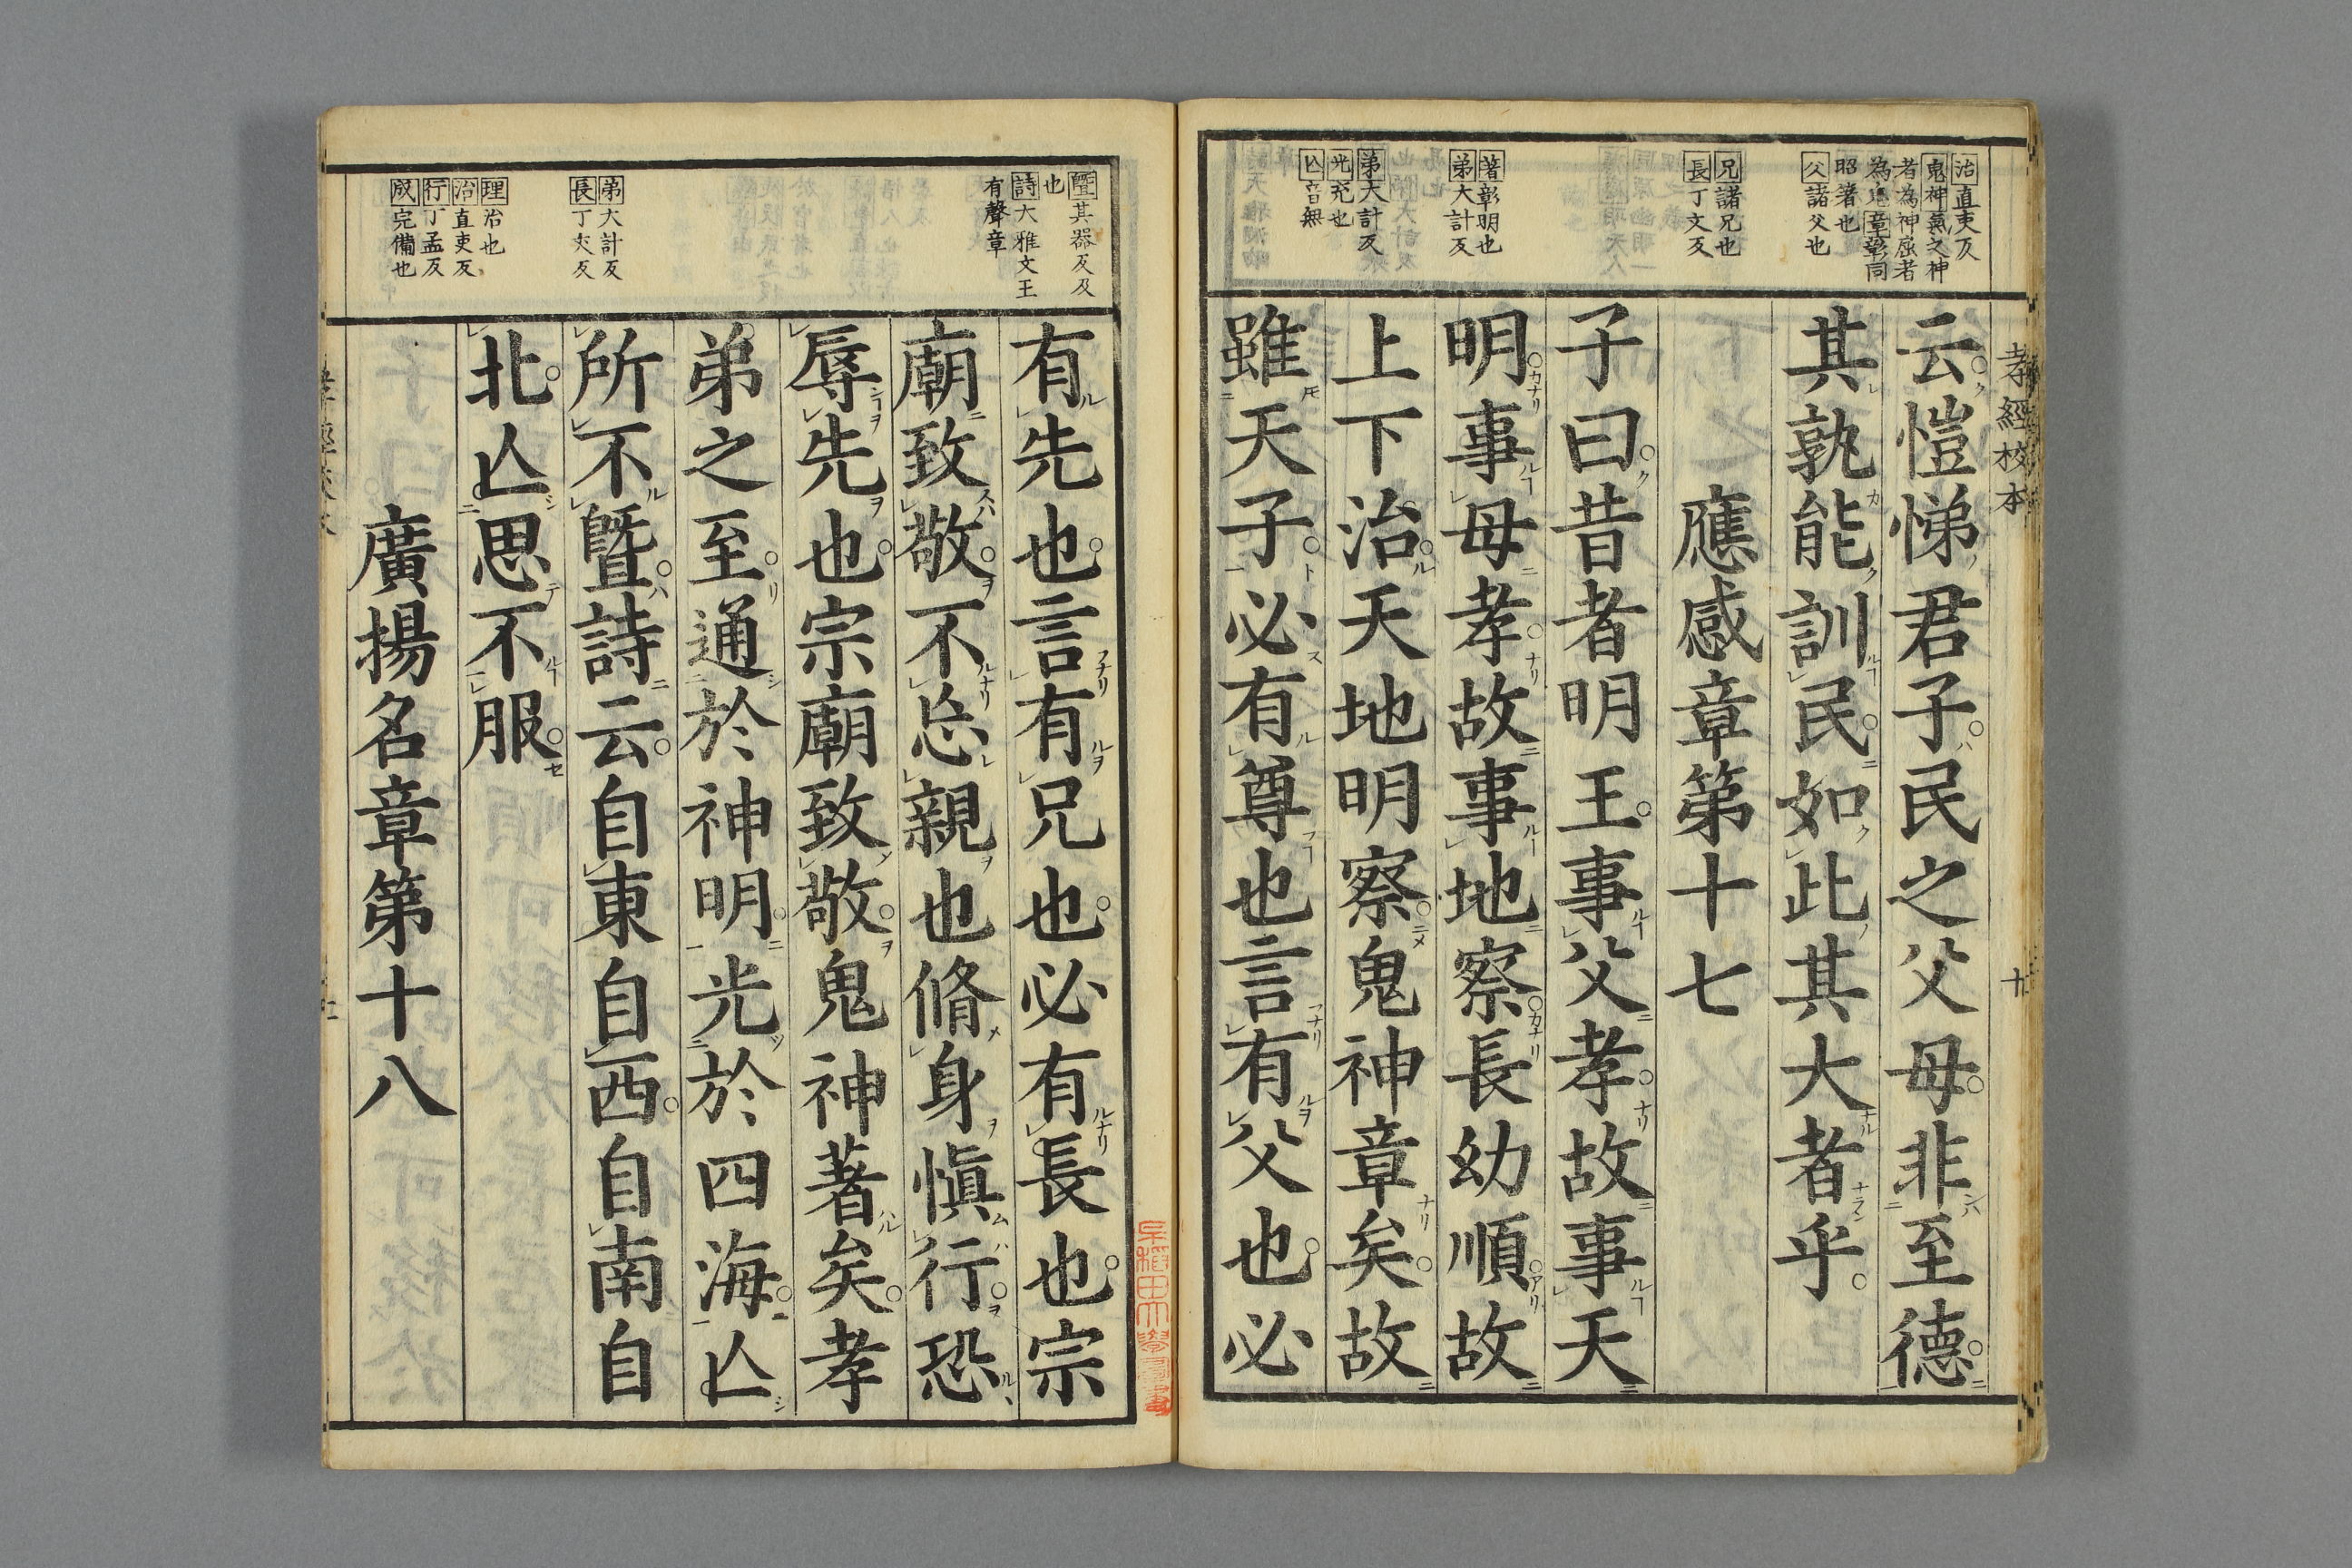 孝經校本
十
治直吏反
鬼神氣之神
者為神屈者
為鬼章彰同
昭著也
父諸父也
兄諸兄也
長丁丈反
著彰明也
弟大計反
弟大計反
光充也
亾音無
云愷悌君子民之父母非至德
其孰能訓民如此其大者乎
應感章第十七
子曰昔者明王事父孝故事天
明事母孝故事地察長幼順故
上下治天地明察鬼神章矣故
雖天子必有尊也言有父也必
曁其器反及
也
詩大雅文王
有聲章
弟大計反
長丁丈反
理治也
治直吏反
行丁孟反
成完備也
有先也言有兄也必有長也宗
廟致敬不忘親也脩身慎行恐
辱先也宗廟致敬鬼神著矣孝
弟之至通於神明光於四海亾
所不曁詩云自東自西自南自
北亾思不服
廣揚名章第十八
早稻田大學圖書